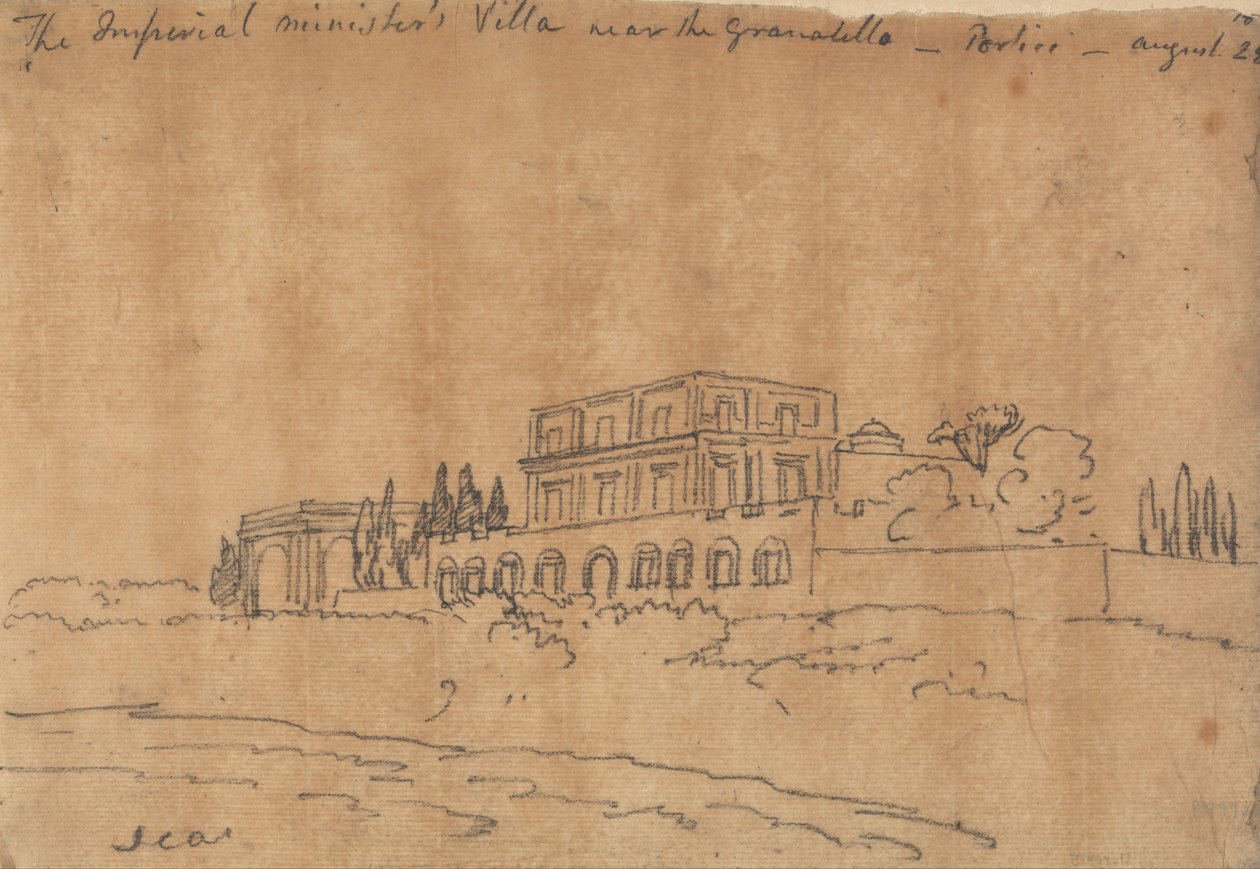 The Imperial minister's Villa near the Granatello — Portici — august 28
Sea